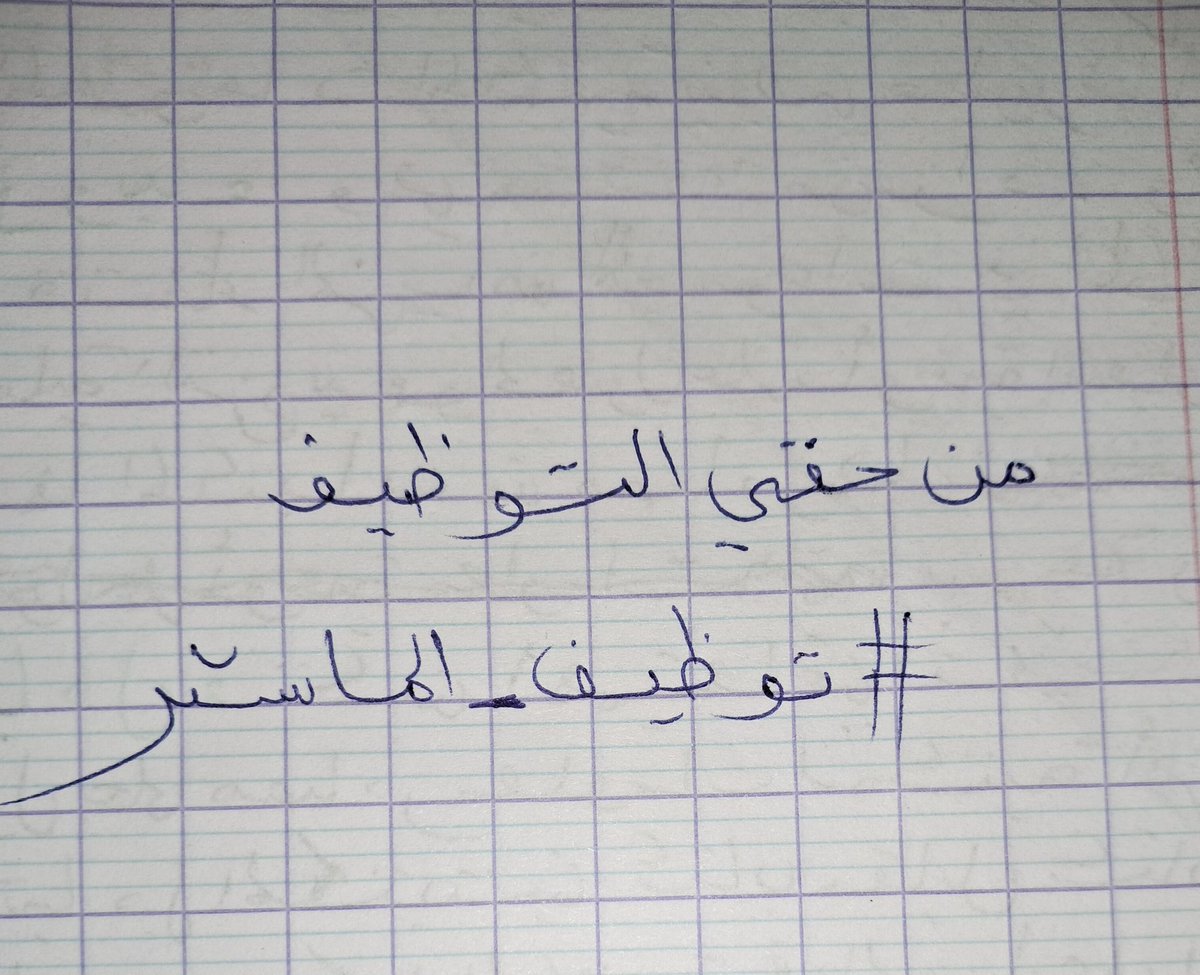 من حقي التوظيف
#توظيف_الماستر